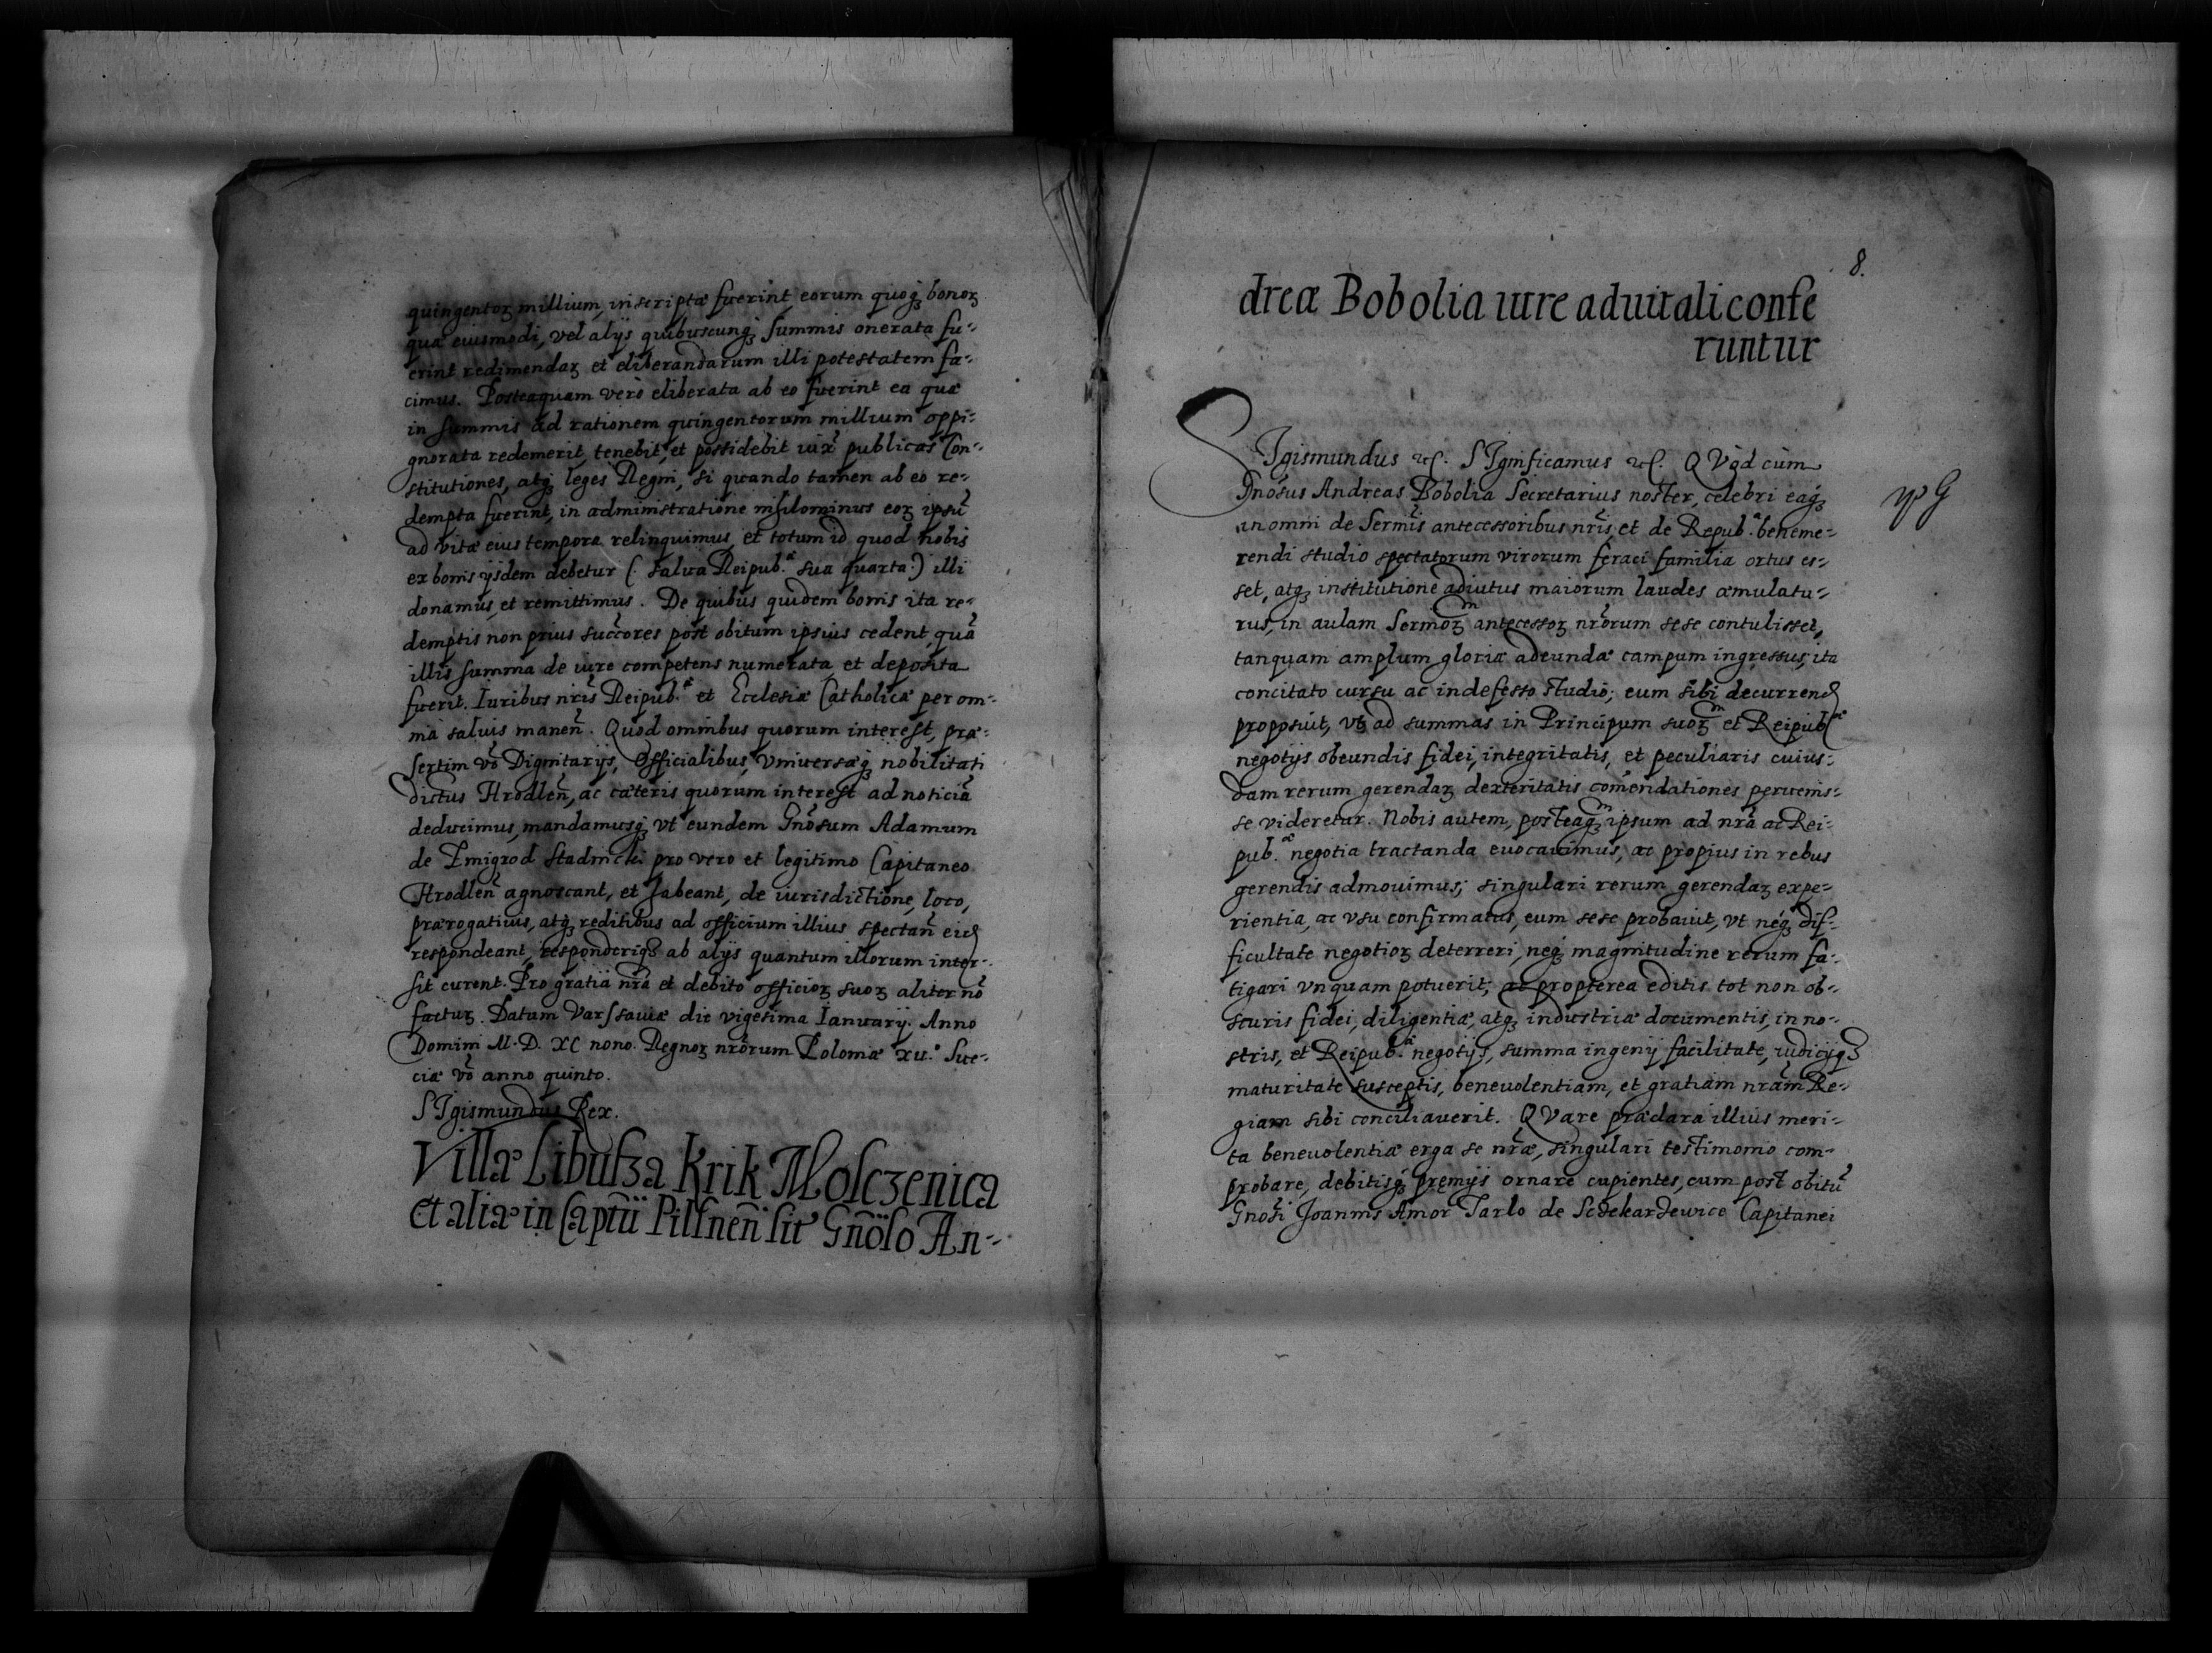 quingentoꝝ millium, inscriptæ fuerint, eorum quoq̃ bonoꝝ
quæ eiusmodi, vel alijs quibuscunq̃ summis onerata fu-
erint redimendaꝝ et eliberandarum illi potestatem fa-
cimus. Posteaquam verò eliberata ab eo fuerint ea quæ
in summis ad rationem quingentorum millium oppi-
gnorata redemerit, tenebit, et possidebit iux̃ publicas Con-
stitutiones, atq̃ leges Regni, si quando tamen ab eo re-
dempta fuerint, in administratione nihilominus eoꝝ ipsũ
ad vitæ eius tempora relinquimus, et totum id quod nobis
ex bonis ijsdem debetur (: salua Reipub.ᵃᵉ sua quarta:) illi
donamus, et remittimus. De quibus quidem bonis ita re-
demptis non prius succõres post obitum ipsius cedent, quã
illis summa de iure competens numerata, et deposita
fuerit. Iuribus nr̃is Reipub.ᵃᵉ et Ecclesiæ Catholicæ per om-
nia saluis maneñ. Quod omnibus quorum interest, præ-
sertim võ Dignitarijs, Officialibus, Vniuersæq̃ nobilitati
dictus Hrodleñ, ac cæteris quorum interest ad noticiã
deducimus, mandamusq̃ vt eundem Gnõsum Adamum
de Zmigrod Stadnicki pro vero et legitimo Capitaneo
Hrodleñ agnoscant, et habeant, de iurisdictione, loco,
prærogatiuis, atq̃ reditibus ad officium illius spectañ eid
respondeant, responderiq̃ ab alijs quantum illorum inter-
sit curent. Pro gratia nrã et debito officioꝝ suoꝝ aliter nõ
factuꝝ. Datum Varssauiæ die vigesima Ianuarij. Anno
Domini M.D.XC nono. Regnoꝝ nrõrum Poloniæ xii.° Sue-
ciæ võ anno quinto.
SIgismundus Rex.
Villæ Libusza Krik Molczenica
et aliæ in Captũ Pilsneñ sit̃ Gnõso An-
8.
dreæ Bobolia iure aduitali confe
runtur
SIgismundus etc. SIgnificamus etc. QVod cùm
Gnõsus Andreas Bobolia Secretarius noster, celebri eaq̃
in omni de Sermĩs antecessoribus nr̃is, et de Repub.ᵃ beneme-
rendi studio spectatorum virorum feraci familia ortus es-
set, atq̃ institutione adiutus maiorum laudes æmulatu-
rus, in aulam Sermoꝝ antecessoꝝ nrõrum sese contulisset,
tanquam amplum gloriæ adeundæ campum ingressus, ita
concitato cursu ac indefesso studio; eum sibi decurrend
proposuit, vt ad summas in Principum suoꝝ et Reipub.ᵃᵉ
negotijs obeundis fidei, integritatis, et peculiaris cuius-
dam rerum gerendaꝝ dexteritatis com̃endationes peruenis-
se videretur. Nobis autem, posteaq̃ᵐ ipsum ad nrã ac Rei-
pub.ᵃᵉ negotia tractanda euocauimus, ac propius in rebus
gerendis admouimus; singulari rerum gerendaꝝ expe-
rientia, ac vsu confirmatus, eum sese probauit, vt neq̃ dif-
ficultate negotioꝝ deterreri, neq̃ magnitudine rerum fa-
tigari vnquam potuerit; ac propterea editis tot non ob-
scuris fidei, diligentiæ, atq̃ industriæ documentis, in no-
stris, et Reipub.ᵃᵉ negotijs, summa ingenij facilitate, iudicijq̃
maturitate susceptis, beneuolentiam, et gratiam nrãm Re-
giam sibi conciliauerit. QVare præclara illius meri-
ta beneuolentiæ erga se nrẽæ, singulari testimonio com-
probare, debitisq̃ pręmijs ornare cupientes, cum post obitũ
Gnõsi Joannis Amor Tarlo de Sczekarzewice Capitanei